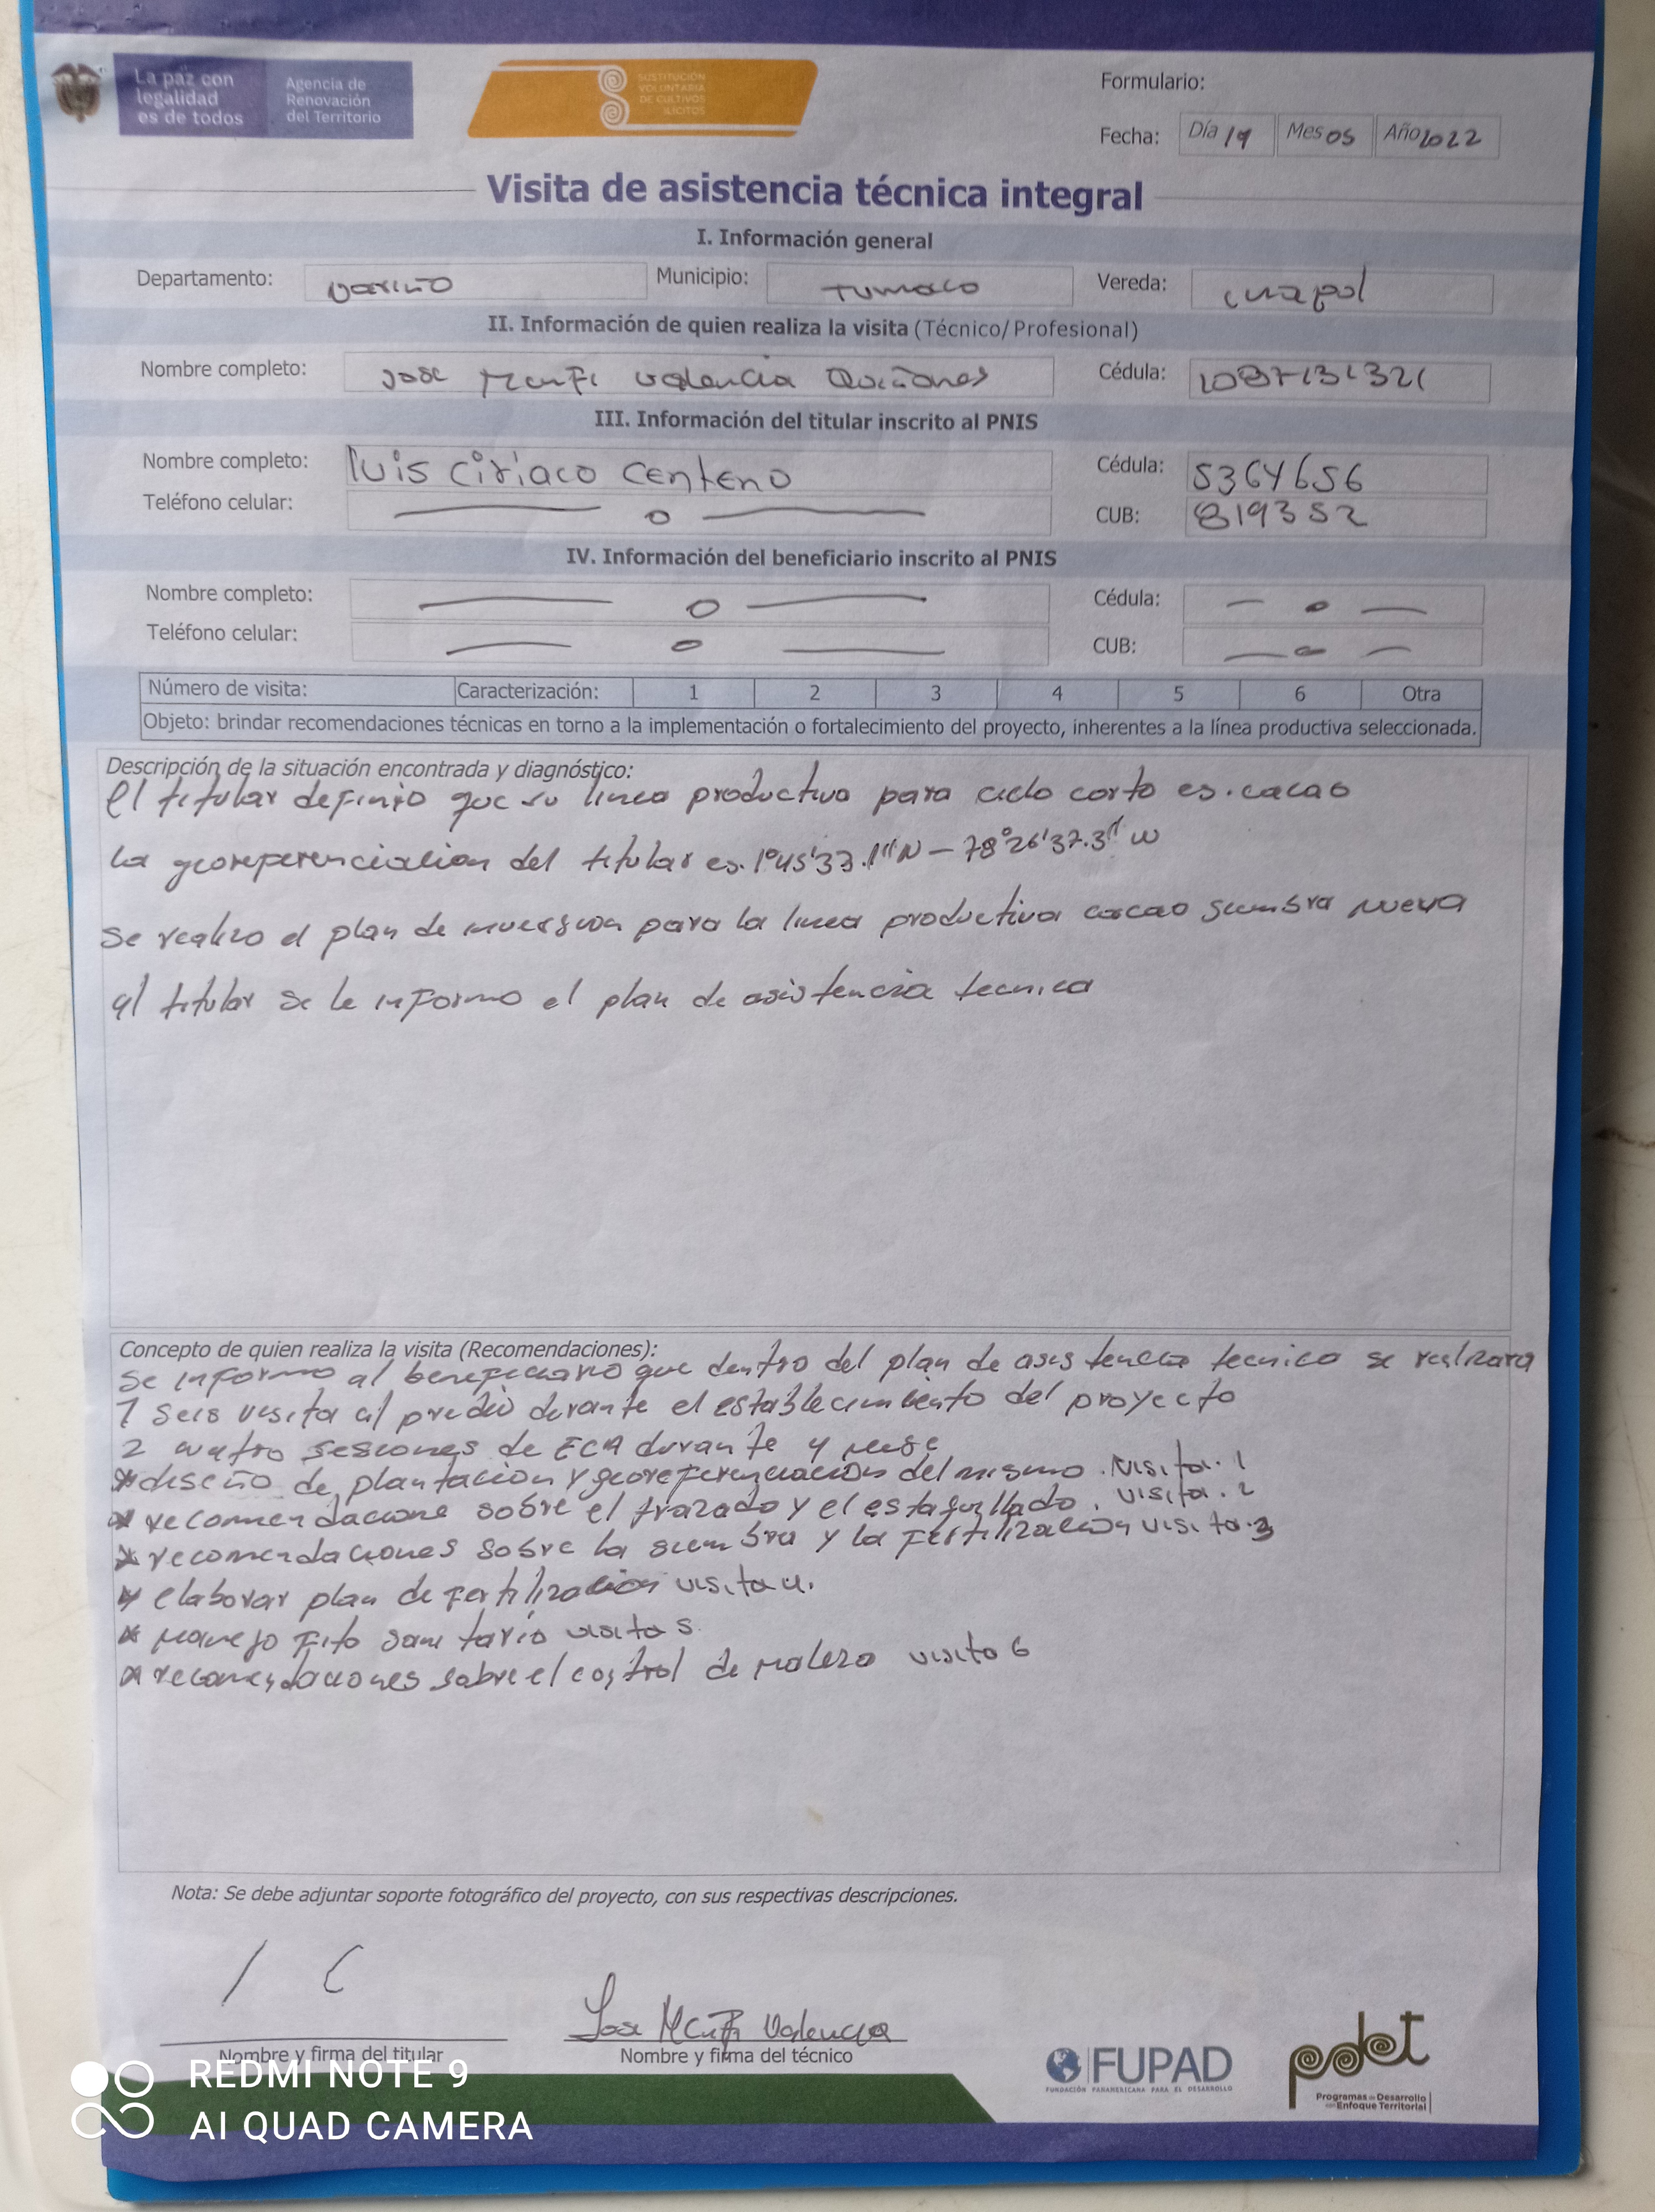 La paz con
legalidad
es de todos
Agencia de
Renovación
del Territorio
SUSTITUCIÓN
VOLUNTARIA
DE CULTIVOS
ILÍCITOS
Formulario:
Fecha: Día 19 Mes 05 Año 2022
Visita de asistencia técnica integral
I. Información general
Departamento: Nariño Municipio: Tumaco Vereda:
II. Información de quien realiza la visita (Técnico/Profesional)
Nombre completo: Jose valencia Quiñones Cédula:
III. Información del titular inscrito al PNIS
Nombre completo: luis Ciriaco Centeno Cédula: 5364656
Teléfono celular: — o — CUB: 819352
IV. Información del beneficiario inscrito al PNIS
Nombre completo: — o — Cédula: — o —
Teléfono celular: — o — CUB: — o —
Número de visita: Caracterización: 1 2 3 4 5 6 Otra
Objeto: brindar recomendaciones técnicas en torno a la implementación o fortalecimiento del proyecto, inherentes a la línea productiva seleccionada.
Descripción de la situación encontrada y diagnóstico:
El titular definio que su linea productiva para ciclo corto es. cacao
la georeferenciacion del titular es. 1°45'33.1"N - 78°26'37.3" W
se realizo el plan de inversion para la linea productiva cacao siembra nueva
al titular se le informo el plan de asistencia tecnica
Concepto de quien realiza la visita (Recomendaciones):
se informo al beneficiario que dentro del plan de asistencia tecnica se realizara
1 seis visita al predio durante el establecimiento del proyecto
2 cuatro sesiones de ECA durante 4 mese
* diseño de plantacion y georeferenciacion del mismo. visita. 1
* recomendacione sobre el trazado y el estaquillado. visita. 2
* recomendaciones sobre la siembra y la fertilizacion visita. 3
* elaborar plan de fertilizacion visita 4.
* manejo fito sanitario visita 5.
* recomendaciones sobre el control de maleza visita 6
Nota: Se debe adjuntar soporte fotográfico del proyecto, con sus respectivas descripciones.
l C
Jose Valencia
Nombre y firma del titular Nombre y firma del técnico
FUPAD
FUNDACIÓN PANAMERICANA PARA EL DESARROLLO
pdet
Programas de Desarrollo
con Enfoque Territorial
REDMI NOTE 9
AI QUAD CAMERA